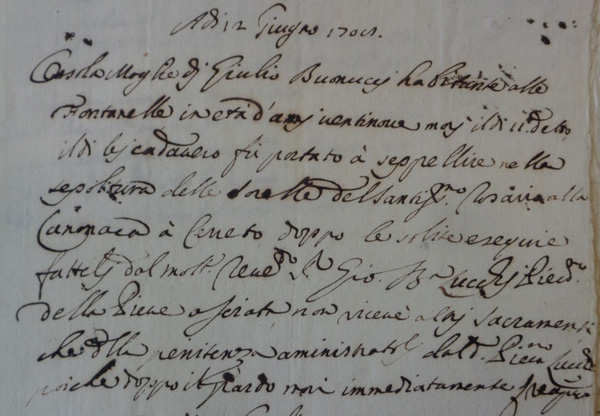 Adi 12 Giugno 170
Orsola Moglie di Giulio Bonucci habitante alle
Fontanelle in età d'anni ventinove morì il dì 11 detto
il di lei cadavero fù portato à seppellire nella
sepoltura delle Sorelle del Santiss.mo Rosario alla
Canonaca à Cerreto doppo le solite esequie
fatteli dal molt. Reve.do Sr. Gio. Ba. Lucchesi Piev.o
della Pieve a non riceve altri sacramenti
che della penitenza aministratoli dal d. Piev.no
poiche doppo il morì immediatamente